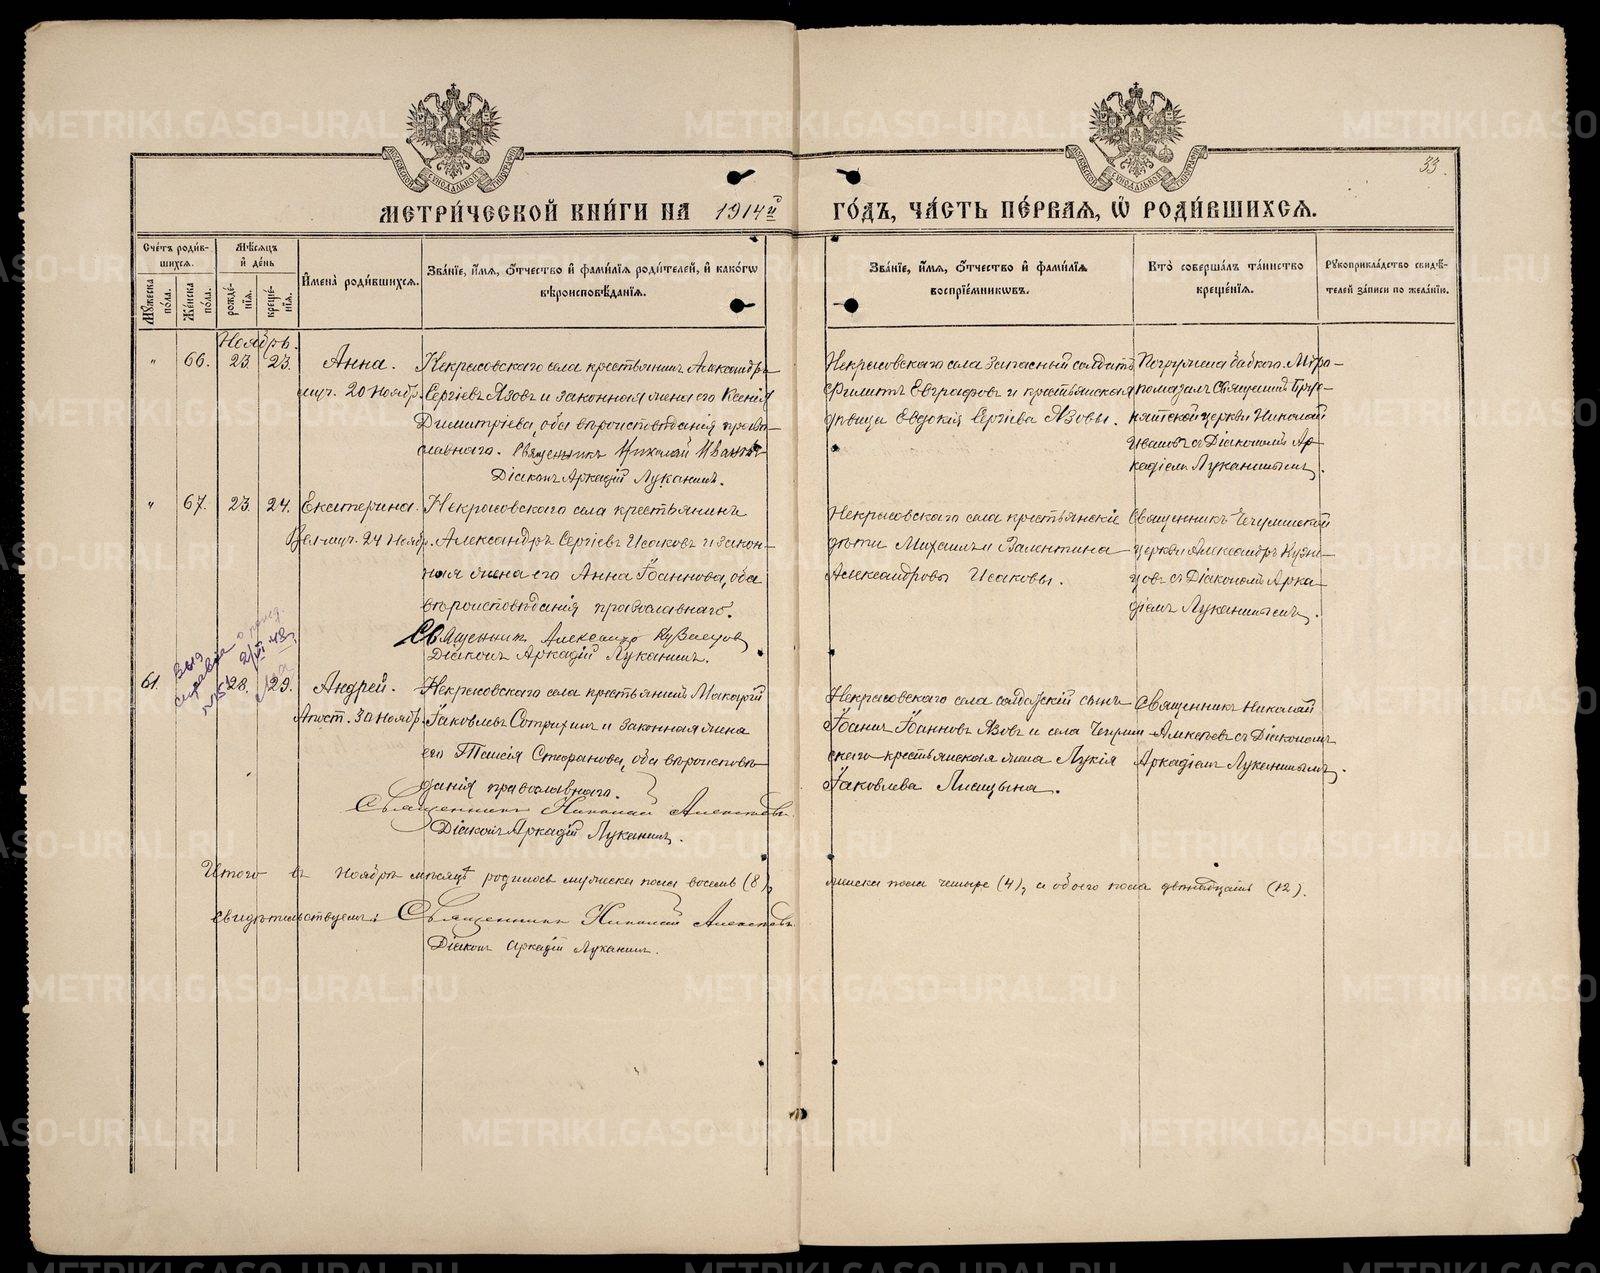 33.
МЕТРИ́ЧЕСКОЙ КНИ́ГИ НА 1914й ГО́ДЪ, ЧА́СТЬ ПЕ́РВАЯ, Ѡ РОДИ́ВШИХСЯ.
Сче́тъ роди́вшихся.
Мѣ́сяцъ и҆ де́нь
И҆мена̀ роди́вшихся.
Зва́нїе, и҆́мя, ѻ҆́тчество и҆ фами́лїя роди́телей, и҆ како́гѡ вѣроисповѣ́данїя.
Зва́нїе, и҆́мя, ѻ҆́тчество и҆ фами́лїя воспрїе́мникѡвъ.
Кто̀ соверша́лъ та́инство креще́нїя.
Рꙋкоприкла́дство свидѣ́телей за́писи по жела́нїю.
Мꙋ́жеска по́ла.
Же́нска по́ла.
рожде́нїя.
креще́нїя.
Ноябрь.
" 66. 23. 23. Анна.
муч. 20 Ноябр.
Некрасовскаго села крестьянинъ Александръ
Сергіевъ Язовъ и законная жена его Ксенія
Димитріева, оба вѣроисповѣданія право-
славнаго. Священникъ Николай Ивановъ
Діаконъ Аркадій Луканинъ.
Некрасовскаго села запасный солдатъ
Филиппъ Евграфовъ и крестьянская
дѣвица Евдокія Сергіева Язовы.
Погружала бабка. Мѵро-
помазалъ Священникъ
церкви Николай
Ивановъ съ Діакономъ Ар-
кадіемъ Луканинымъ.
" 67. 23. 24. Екатерина.
Вел-муч. 24 Ноябр.
Некрасовскаго села крестьянинъ
Александръ Сергіевъ Исаковъ и закон-
ная жена его Анна Іоаннова, оба
вѣроисповѣданія православнаго.
Священник Александр Кузнецов
Діаконъ Аркадій Луканинъ.
Некрасовскаго села крестьянскіе
дѣти Михаилъ и Валентина
Александровы Исаковы.
Священникъ
церкви Александръ Кузне-
цовъ съ Діакономъ Арка-
діемъ Луканинымъ.
справка
61. 28. 29. Андрей.
Апост. 30 Ноябр.
Некрасовскаго села крестьянинъ Макарій
Іаковлевъ и законная жена
его Таисія Стефанова, оба вѣроисповѣ-
данія православнаго.
Священникъ Николай
Діаконъ Аркадій Луканинъ.
Некрасовскаго села солдатскій сынъ
Іоаннъ Іоанновъ Язовъ и села
скаго крестьянская жена Лукія
Іаковлева
Священникъ Николай
съ Діакономъ
Аркадіемъ Луканинымъ.
Итого въ Ноябрѣ мѣсяцѣ родилось мужеска пола восемь (8), женска пола четыре (4), а обоего пола двѣнадцать (12).
свидѣтельствуемъ: Священникъ Николай
Діаконъ Аркадій Луканинъ.
METRIKI.GASO-URAL.RU